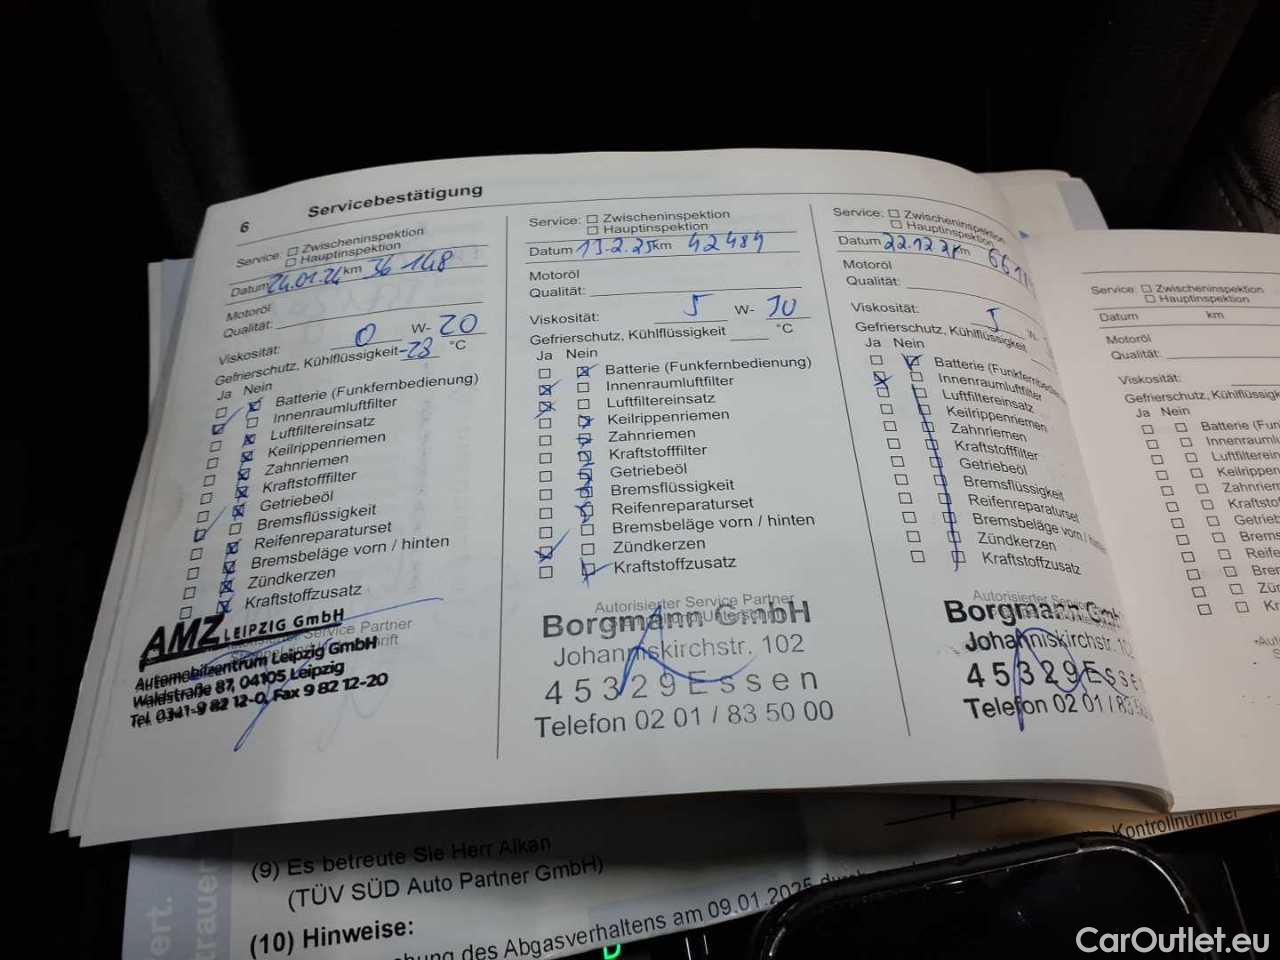 6 Servicebestätigung
Service: Zwischeninspektion
Hauptinspektion
Datum 24.01.24 km 36 148
Motoröl
Qualität:
Viskosität: 0 W- 20
Gefrierschutz, Kühlflüssigkeit -28 °C
Ja Nein
Batterie (Funkfernbedienung)
Innenraumluftfilter
Luftfiltereinsatz
Keilrippenriemen
Zahnriemen
Kraftstofffilter
Getriebeöl
Bremsflüssigkeit
Reifenreparaturset
Bremsbeläge vorn / hinten
Zündkerzen
Kraftstoffzusatz
Service Partner
AMZ LEIPZIG GmbH
Automobilzentrum Leipzig GmbH
Waldstraße 87, 04105 Leipzig
Tel. 0341-9 82 12-0, Fax 9 82 12-20
Service: Zwischeninspektion
Hauptinspektion
Datum 13.2.25 km 42489
Motoröl
Qualität:
Viskosität: 5 W- 30
Gefrierschutz, Kühlflüssigkeit °C
Ja Nein
Batterie (Funkfernbedienung)
Innenraumluftfilter
Luftfiltereinsatz
Keilrippenriemen
Zahnriemen
Kraftstofffilter
Getriebeöl
Bremsflüssigkeit
Reifenreparaturset
Bremsbeläge vorn / hinten
Zündkerzen
Kraftstoffzusatz
Autorisierter Service Partner
Borgmann GmbH
Johanniskirchstr. 102
45329 Essen
Telefon 02 01 / 83 50 00
Service: Zwischeninspektion
Hauptinspektion
Datum 22.12 km
Motoröl
Qualität:
Viskosität: 5 W-
Gefrierschutz, Kühlflüssigkeit
Ja Nein
Batterie (Funkfernbedie
Innenraumluftfilter
Luftfiltereinsatz
Keilrippenriemen
Zahnriemen
Kraftstofffilter
Getriebeöl
Bremsflüssigkeit
Reifenreparaturset
Bremsbeläge vorn / hinten
Zündkerzen
Kraftstoffzusatz
Autorisierter Servic
Borgmann Gm
Johanniskirchstr. 10
45329 Esse
Telefon 02 01 / 83 50
Service: Zwischeninspektion
Hauptinspektion
Datum km
Motoröl
Qualität:
Viskosität:
Gefrierschutz, Kühlflüssigk
Ja Nein
Batterie (Fun
Innenraumlu
Luftfilterein
Keilrippenri
Zahnriem
Kraftsto
Getrieb
Brems
Reife
Bre
Zün
Kr
(9) Es betreute Sie Herr Alkan
(TÜV SÜD Auto Partner GmbH)
(10) Hinweise:
des Abgasverhaltens am 09.01.2025 durch
Kontrollnummer
ert.
trauer
CarOutlet.eu